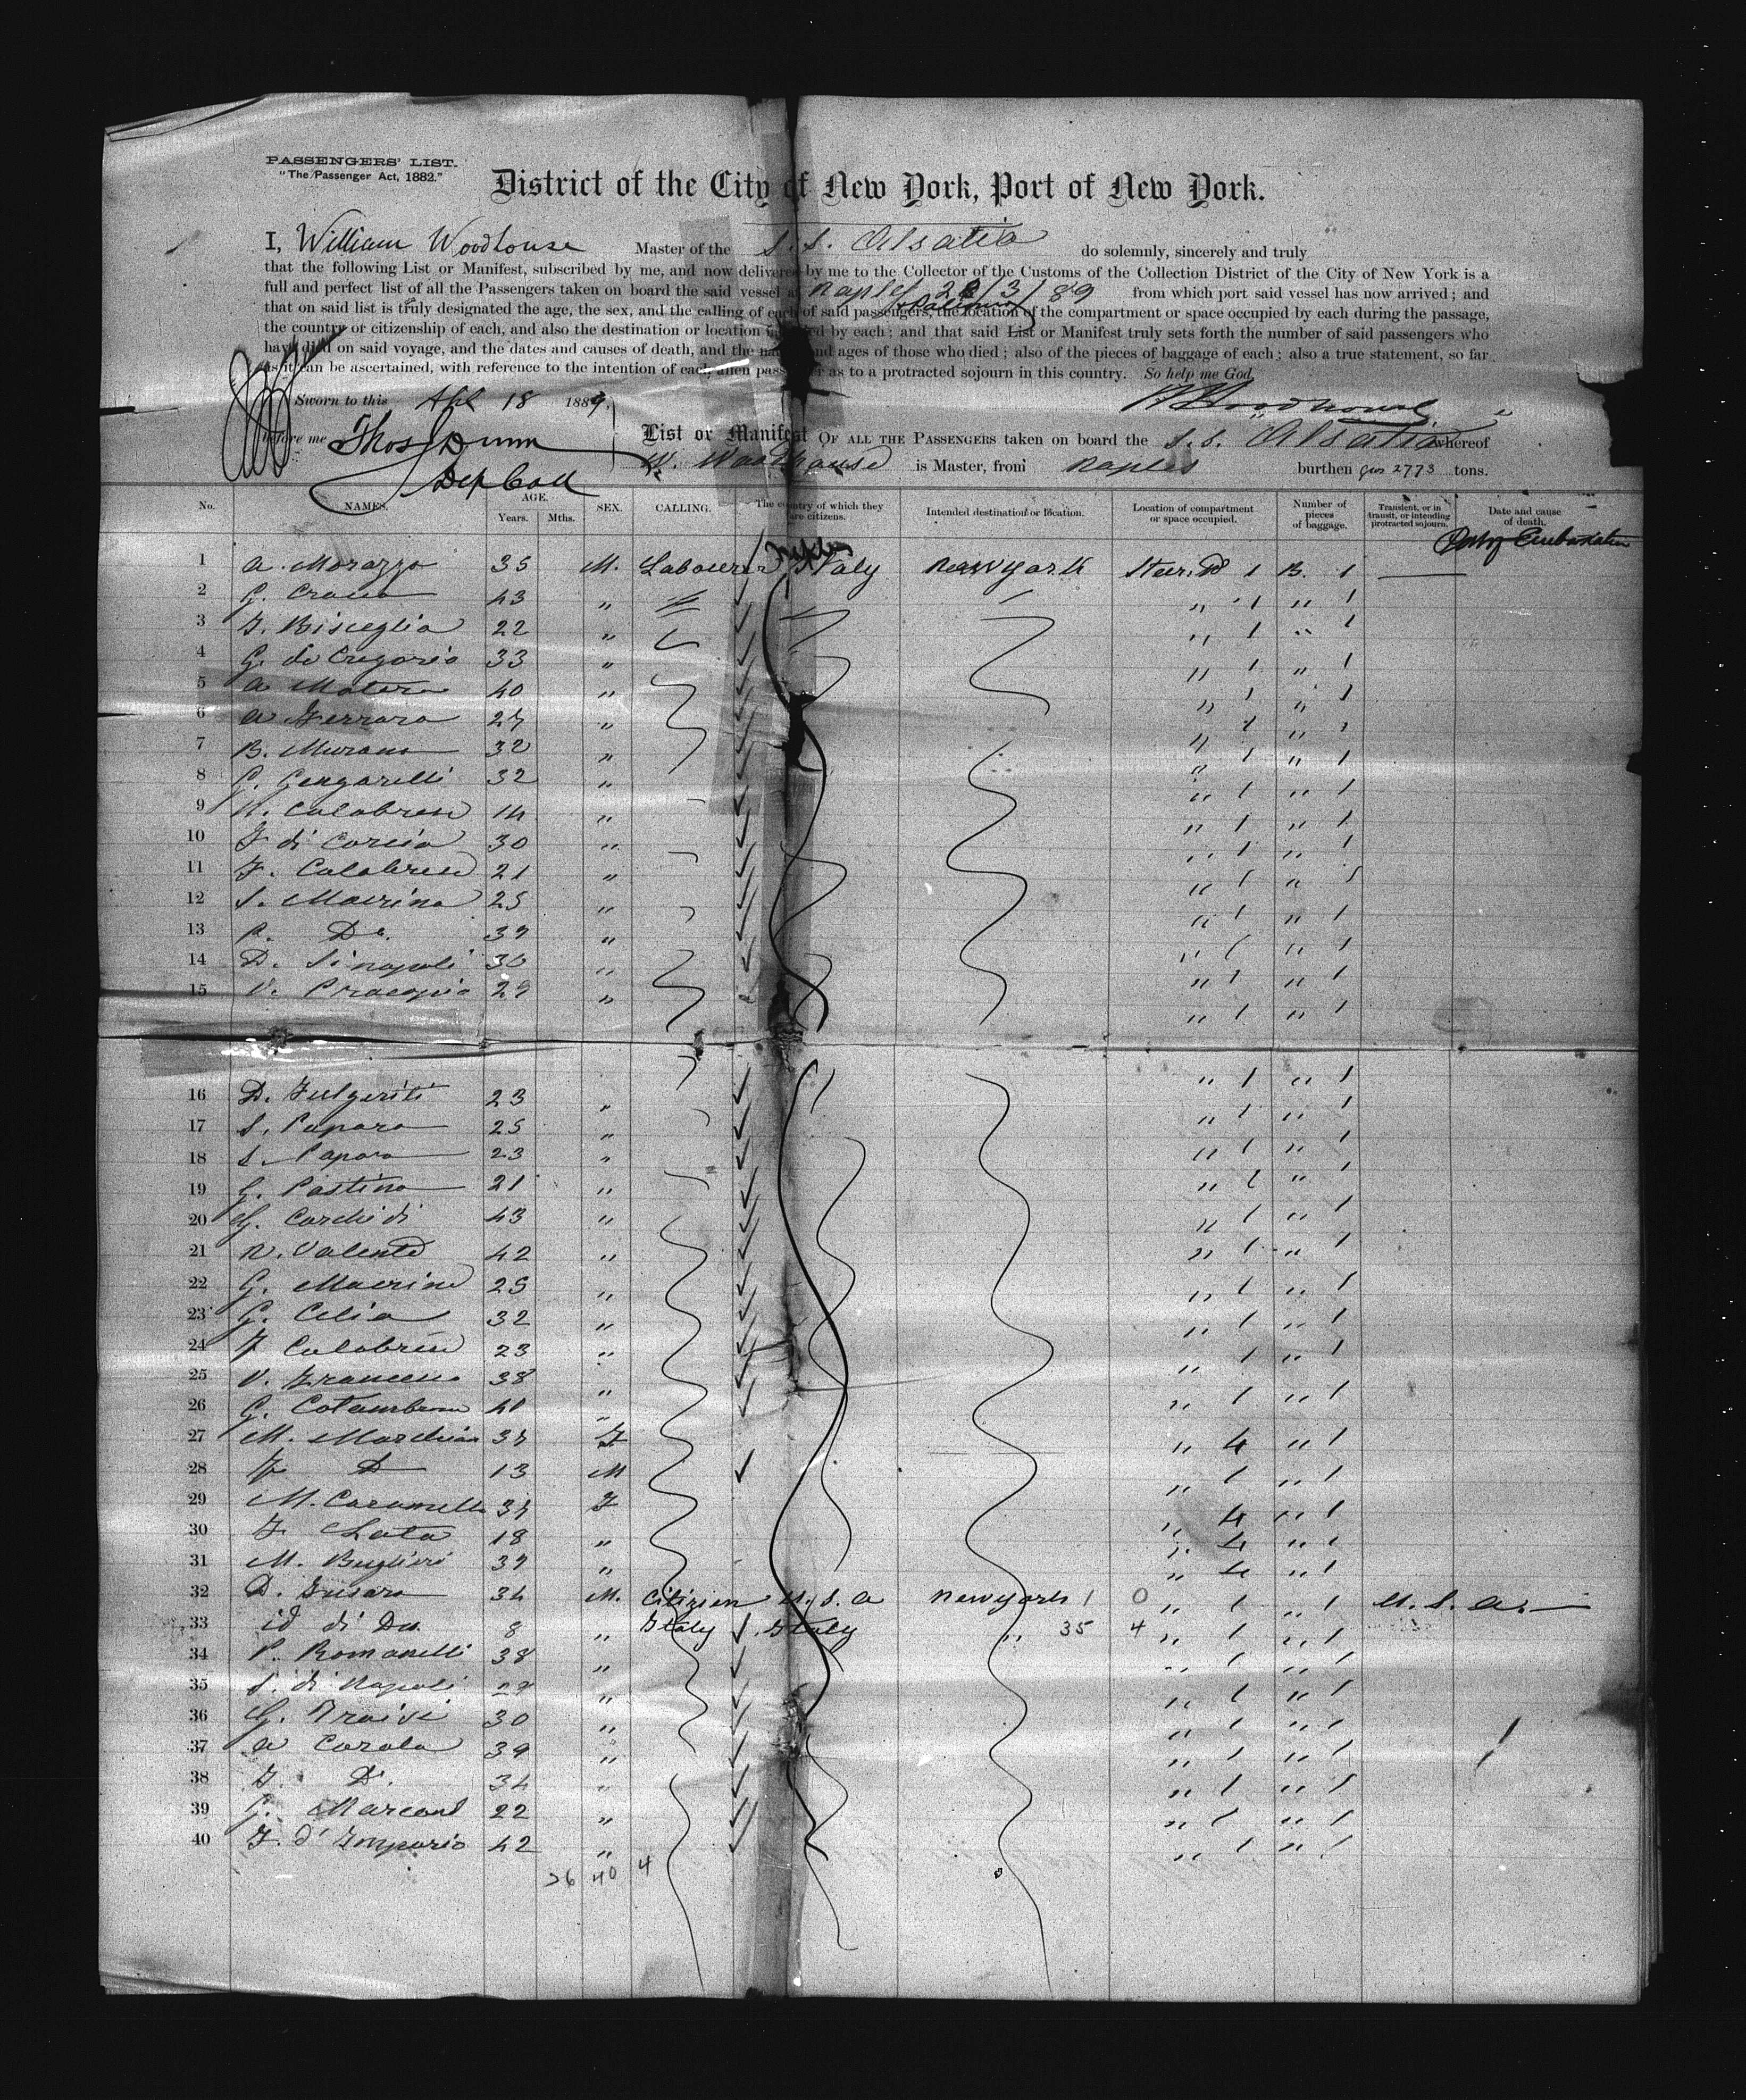 PASSENGERS' LIST.
"The Passenger Act, 1882."
District of the City of New York, Port of New York.
I, William Woodhouse Master of the S.S. Alsatia do solemnly, sincerely and truly
that the following List or Manifest, subscribed by me, and now delivered by me to the Collector of the Customs of the Collection District of the City of New York is a
full and perfect list of all the Passengers taken on board the said vessel at Naples 2 /3/89 from which port said vessel has now arrived; and
& Palermo
that on said list is truly designated the age, the sex, and the calling of each of said passengers, the location of the compartment or space occupied by each during the passage,
the country or citizenship of each, and also the destination or location intended by each; and that said List or Manifest truly sets forth the number of said passengers who
have died on said voyage, and the dates and causes of death, and the names and ages of those who died; also of the pieces of baggage of each; also a true statement, so far
as it can be ascertained, with reference to the intention of each alien passenger as to a protracted sojourn in this country. So help me God,
Sworn to this Apl 18 1889. W Woodhouse
before me Thos Dunn List or Manifest OF ALL THE PASSENGERS taken on board the S.S. Alsatia whereof
Dep Coll W. Woodhouse is Master, from Naples burthen 2773 tons.
No. NAMES. AGE. Years. Mths. SEX. CALLING. The country of which they are citizens. Intended destination or location. Location of compartment or space occupied. Number of pieces of baggage. Transient, or in transit, or intending protracted sojourn. Date and cause of death.
Port of Embarkation
Naples
1 A. Morazzo 35 M. Labourer Italy New York Steer. 1 B. 1
2 G. 43 " " " 1 " 1
3 F. Bisceglia 22 " " 1 " 1
4 G. de Gregorio 33 " " 1 " 1
5 A Matera 40 " " 1 " 1
6 A Ferrara 27 " " 1 " 1
7 B. Murano 32 " " 1 " 1
8 G. Gengarelli 32 " " 1 " 1
9 N. Calabrese 14 " " 1 " 1
10 F di Corcia 30 " " 1 " 1
11 F. Calabrese 21 " " 1 " 1
12 S. Macrina 25 " " 1 " 1
13 P. Do. 39 " " 1 " 1
14 D. Sinopoli 30 " " 1 " 1
15 V. Procopio 29 " " 1 " 1
16 D. Fulginiti 23 " " 1 " 1
17 S. Paparo 25 " " 1 " 1
18 S. Paparo 23 " " 1 " 1
19 G. Pastino 21 " " 1 "
20 G. Carchidi 43 " " 1 " 1
21 N. Valente 42 " " 1 " 1
22 G. Macrina 25 " " 1 " 1
23 G. Celia 32 " " 1 " 1
24 F Calabrese 23 " " 1 " 1
25 V. 38 " " 1 " 1
26 G. 40 " " 1 " 1
27 M. 37 F " 4 " 1
28 F Do 13 M " 1 " 1
29 M. Caramella 37 F " 4 " 1
30 F Lata 18 " " 4 " 1
31 M. Buglieri 39 " " 4 " 1
32 D. Fusaro 34 M. Citizien U.S.A New York 1 0 " 1 " 1 U.S.A. —
33 id di Do. 8 " Italy Italy " 35 4 " 1 " 1
34 P. Romanelli 38 " " 1 " 1
35 S. di Napoli 27 " " 1 " 1
36 G. 30 " " 1 " 1
37 A Carola 39 " " 1 " 1
38 F. Do. 34 " " 1 " 1
39 G. 22 " " 1 " 1
40 F. d'Imperio 42 " " 1 " 1
36 40 4